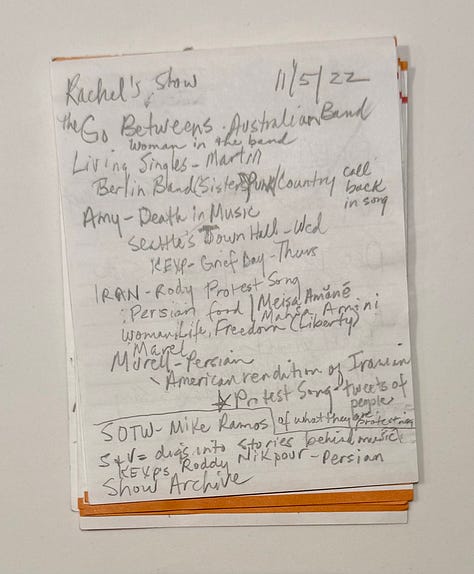 Rachel's Show 11/5/22
The Go Betweens. Australian Band
woman in the band
Living Singles - Martin
Berlin Band (Sisters Punk/Country call back in song
Amy - Death in Music
Seattle's Town Hall - Wed
KEXP - Grief Day - Thurs
IRAN - Rody Protest Song
Persian food / Meisa Amăné
Mahsa Amini
Woman, Life, Freedom (Liberty)
Marel
Murell - Persian
American rendation of Iranian
Protest Song - tweets of people
SOTW - Mike Ramos of what they are protesting
S+V= digs into stories behind music
KEXPs Roddy Nikpour - Persian
Show Archive